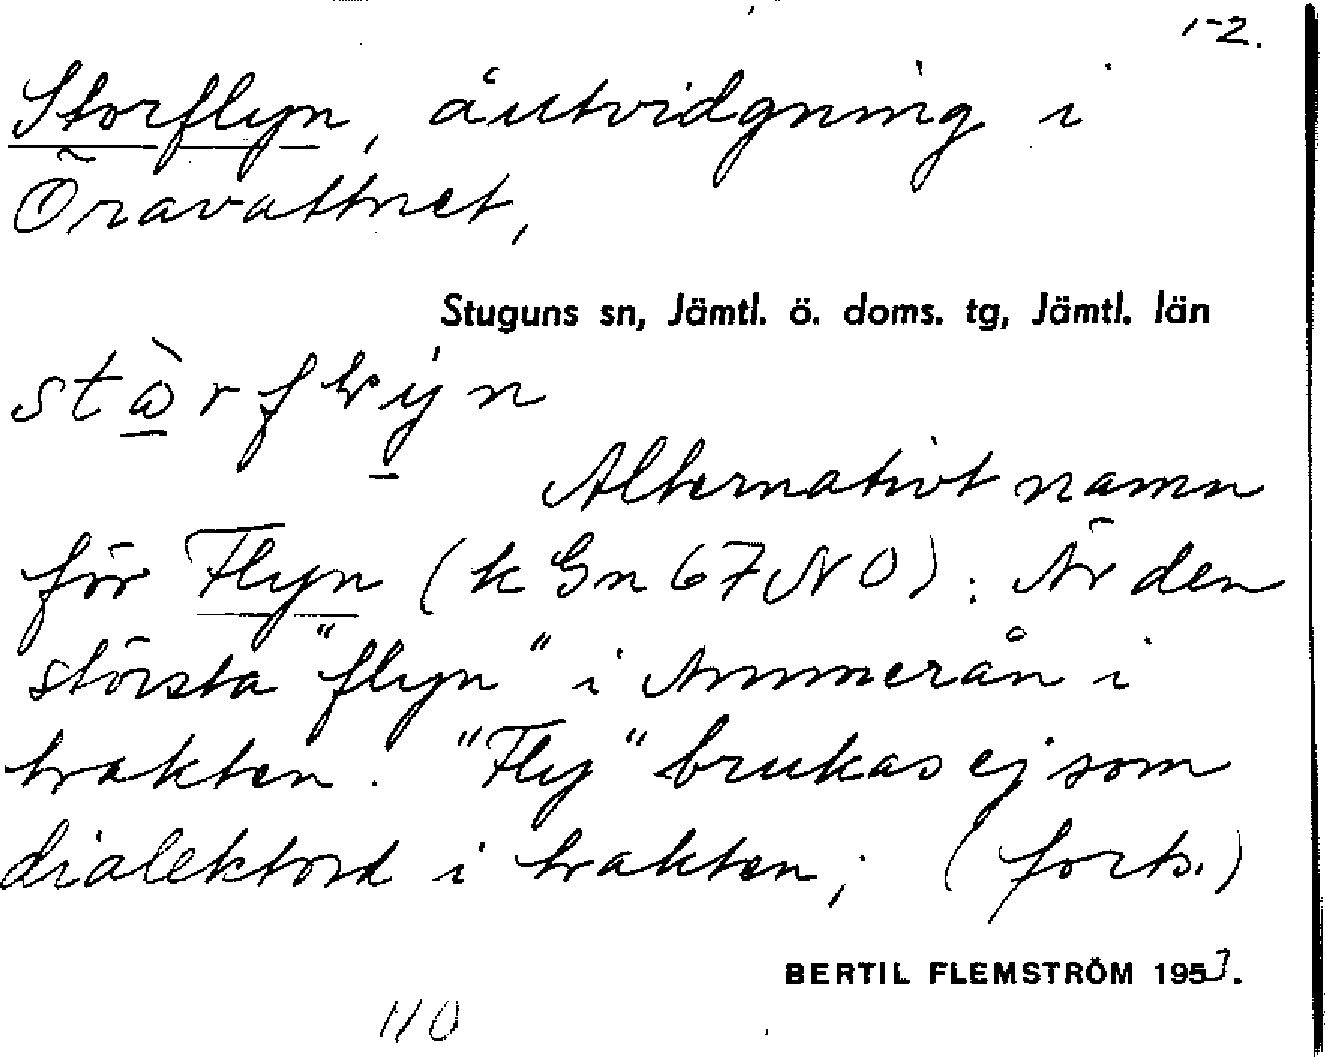 1-2.
Storflyn, åutvidgning i
Öravattnet,
Stuguns sn, Jämtl. ö. doms. tg, Jämtl. län
Alternativt namn
för Flyn (k Gn 67 NO): Är den
största "flyn" i Ammerån i
trakten. "Fly" brukas ej som
dialektord i trakten, (forts.)
BERTIL FLEMSTRÖM 195
110